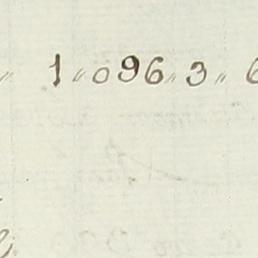 〃 1〃096〃3〃6